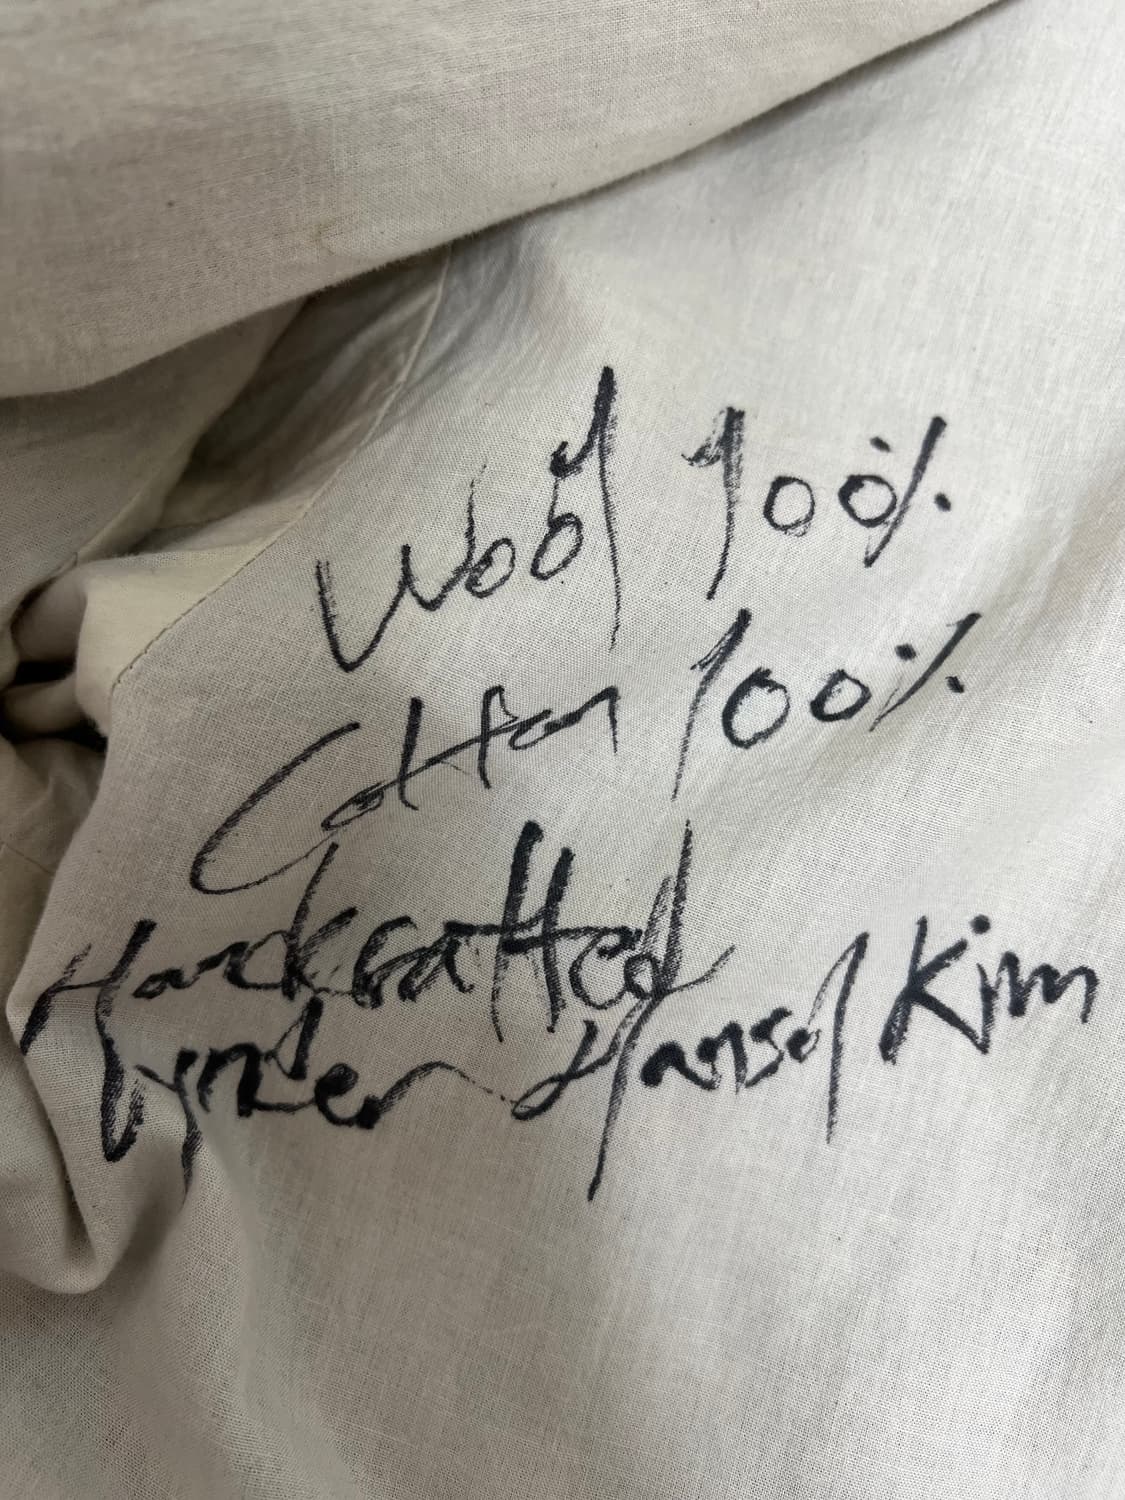 Wool 100%
Cotton 100%
Handcrafted
Hansol Kim